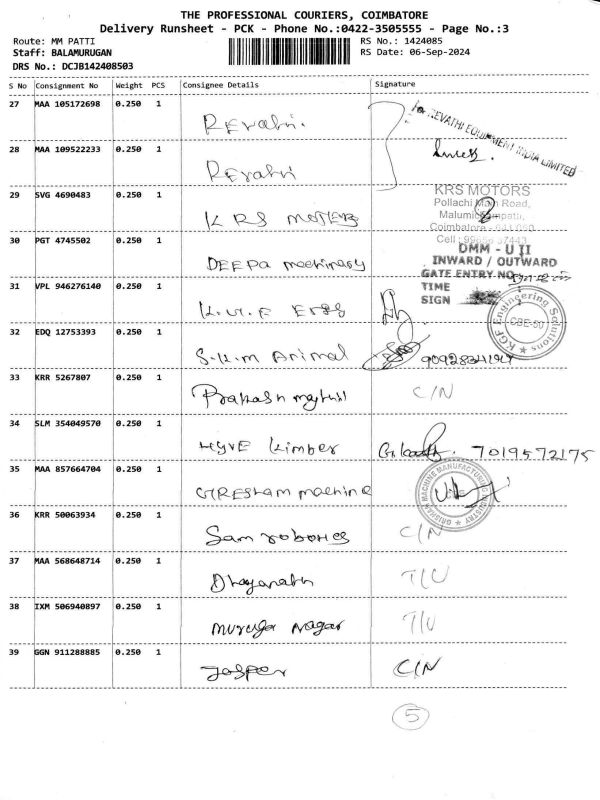 THE PROFESSIONAL COURIERS, COIMBATORE
Delivery Runsheet - PCK - Phone No.:0422-3505555 - Page No.:3
Route: MM PATTI RS No.: 1424085
Staff: BALAMURUGAN RS Date: 06-Sep-2024
DRS No.: DCJB142408503
S No Consignment No Weight PCS Consignee Details Signature
27 MAA 105172698 0.250 1 Revathi. For REVATHI EQUIPMENT INDIA LIMITED
28 MAA 109522233 0.250 1 Revathi
29 SVG 4690483 0.250 1 KRS motters KRS MOTORS
Pollachi Main Road,
Coimbatore
30 PGT 4745502 0.250 1 DEEPA machinary Cell :
DMM - U II
INWARD / OUTWARD
GATE ENTRY NO
31 VPL 946276140 0.250 1 TIME
SIGN
KGF Engineering Solutions
CBE-50
32 EDQ 12753393 0.250 1 S.K.m Animal
33 KRR 5267807 0.250 1 Prakash C/N
34 SLM 354049570 0.250 1 Hyve Kimber 7019572175
35 MAA 857664704 0.250 1 GRESHAM machine GRISHAM MACHINE MANUFACTURING INDUSTRY
36 KRR 50063934 0.250 1 Sam robotics C/N
37 MAA 568648714 0.250 1 Dhayanath T/U
38 IXM 506940897 0.250 1 muruga Nagar T/U
39 GGN 911288885 0.250 1 Josper C/N
5